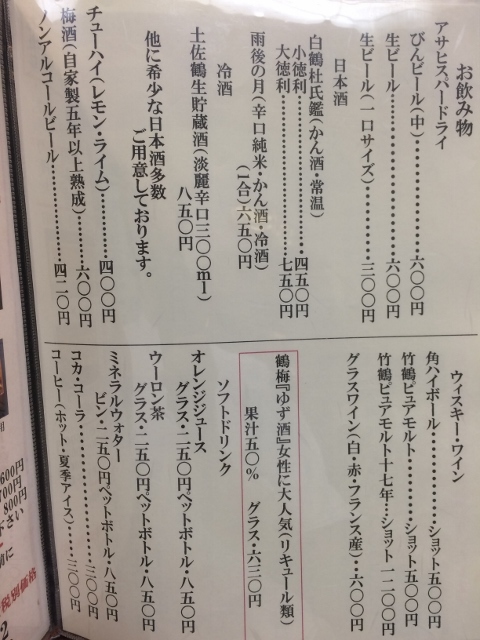 お飲み物
アサヒスパードライ
びんビール(中)・・・・・・・・・・六〇〇円
生ビール・・・・・・・・・・・・・・・六〇〇円
生ビール(一口サイズ)・・・・・・・三〇〇円
日本酒
白鶴杜氏鑑(かん酒・常温)
小徳利・・・・・・・・・・・・・・・・四五〇円
大徳利・・・・・・・・・・・・・・・・七五〇円
雨後の月(辛口純米・かん酒・冷酒)
(1合)六五〇円
冷酒
土佐鶴生貯蔵酒(淡麗辛口三〇〇ml)
八五〇円
他に希少な日本酒多数
ご用意しております。
チューハイ(レモン・ライム)・・・・・四〇〇円
梅酒(自家製五年以上熟成)・・・・・六〇〇円
ノンアルコールビール・・・・・・・・・四二〇円
ウィスキー・ワイン
角ハイボール・・・・・・・・・・ショット五〇〇円
竹鶴ピュアモルト・・・・・・・ショット五〇〇円
竹鶴ピュアモルト十七年・・・ショット一二〇〇円
グラスワイン(白・赤・フランス産)・・六〇〇円
鶴梅『ゆず酒』女性に大人気(リキュール類)
果汁五〇% グラス・六三〇円
ソフトドリンク
オレンジジュース
グラス・二五〇円ペットボトル・八五〇円
ウーロン茶
グラス・二五〇円ペットボトル・八五〇円
ミネラルウォター
ビン・二五〇円ペットボトル・八五〇円
コカ・コーラ・・・・・・・・・・・・・・三〇〇円
コーヒー(ホット・夏季アイス)・・・・三〇〇円
600円
700円
800円
下さい
税別価格